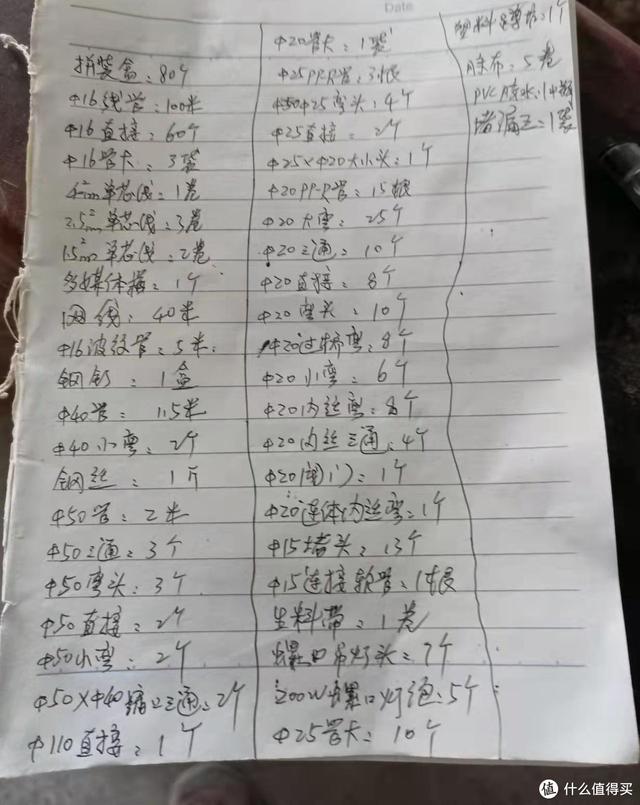 Date
拼装盒：80个
Φ16线管：100米
Φ16直接：60个
Φ16管卡：3袋
4mm²单芯线：1卷
2.5m²单芯线：3卷
1.5m²单芯线：2卷
多媒体箱：1个
网线：40米
Φ16波纹管：5米
钢钉：1盒
Φ40管：1.5米
Φ40小弯：2个
钢丝：1斤
Φ50管：2米
Φ50三通：3个
Φ50弯头：3个
Φ50直接：2个
Φ50小弯：2个
Φ50XΦ40三通：2个
Φ110直接：1个
Φ20管卡：1袋
Φ25PP-R管：3根
Φ25弯头：4个
Φ25直接：2个
Φ25×Φ20大小头：1个
Φ20PP-R管：15根
Φ20大弯：25个
Φ20三通：10个
Φ20直接：8个
Φ20弯头：10个
Φ20过桥弯：8个
Φ20小弯：6个
Φ20内丝弯：8个
Φ20内丝三通：4个
Φ20阀门：1个
Φ20连体内丝弯：1个
Φ15堵头：13个
Φ15连接软管：1根
生料带：1卷
螺口吊灯头：7个
200W螺口灯泡：5个
Φ25管卡：10个
塑料：1个
胶布：5卷
PVC胶水：1中瓶
堵漏王：1袋
值 什么值得买